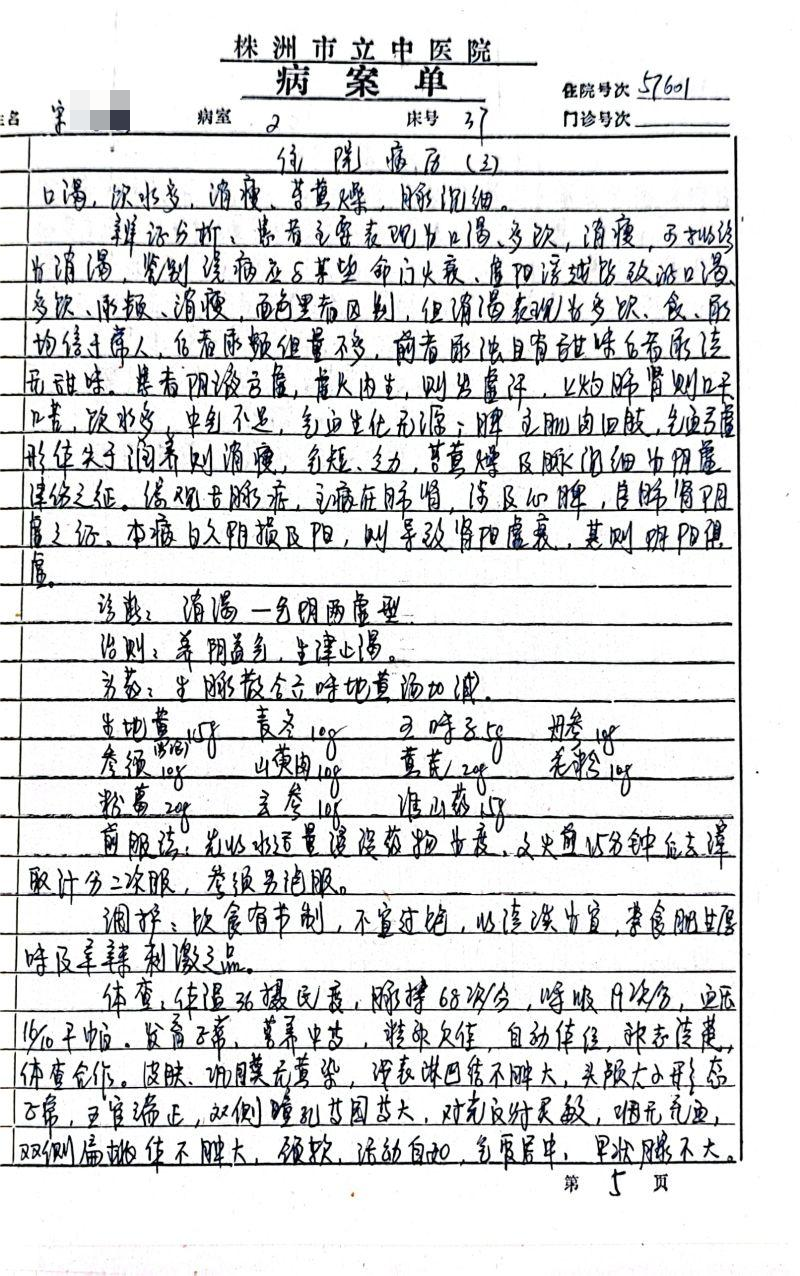 株洲市立中医院
病案单
住院号次 57601
姓名 宋 病室 2 床号 37 门诊号次
住院病历（3）
口渴，饮水多，消瘦，苔黄燥，脉沉细。
辨证分析：患者主要表现为口渴、多饮，消瘦，可拟诊
为消渴，鉴别该病应与某些命门火衰、虚阳浮越所致的口渴、
多饮、尿频、消瘦，面色黑者区别，但消渴表现为多饮、食、尿
均倍于常人，后者尿频但量不多，前者尿浊且有甜味后者尿清
无甜味。患者阴液亏虚，虚火内生，则出虚汗，上灼肺肾则口干
口苦，饮水多，中气不足，气血生化无源；脾主肌肉四肢，气血亏虚
形体失于润养则消瘦，气短、乏力，苔黄燥及脉沉细为阴虚
津伤之征。综观舌脉症，主病在肺肾，涉及心脾，官肺肾阴
虚之证。本病日久阴损及阳，则导致肾阳虚衰，甚则阴阳俱
虚。
诊断：消渴—气阴两虚型
治则：养阴益气，生津止渴。
方药：生脉散合六味地黄汤加减。
生地黄15g 麦冬10g 五味子5g 丹参10g
参须(另泡)10g 山萸肉10g 黄芪20g 花粉10g
粉葛20g 玄参10g 淮山药15g
煎服法：先以水适量浸没药物为度，文火煎15分钟后去滓
取汁分二次服，参须另泡服。
调护：饮食有节制，不宜过饱，以清淡为宜，禁食肥甘厚
味及辛辣刺激之品。
体查：体温36摄氏度，脉搏68次/分，呼吸19次/分，血压
16/10千帕。发育正常，营养中等，精神欠佳，自动体位，神志清楚，
体查合作。皮肤、巩膜无黄染，浅表淋巴结不肿大，头颅大小形态
正常，五官端正，双侧瞳孔等园等大，对光反射灵敏，咽无充血，
双侧扁桃体不肿大，颈软，活动自如，气管居中，甲状腺不大。
第 5 页